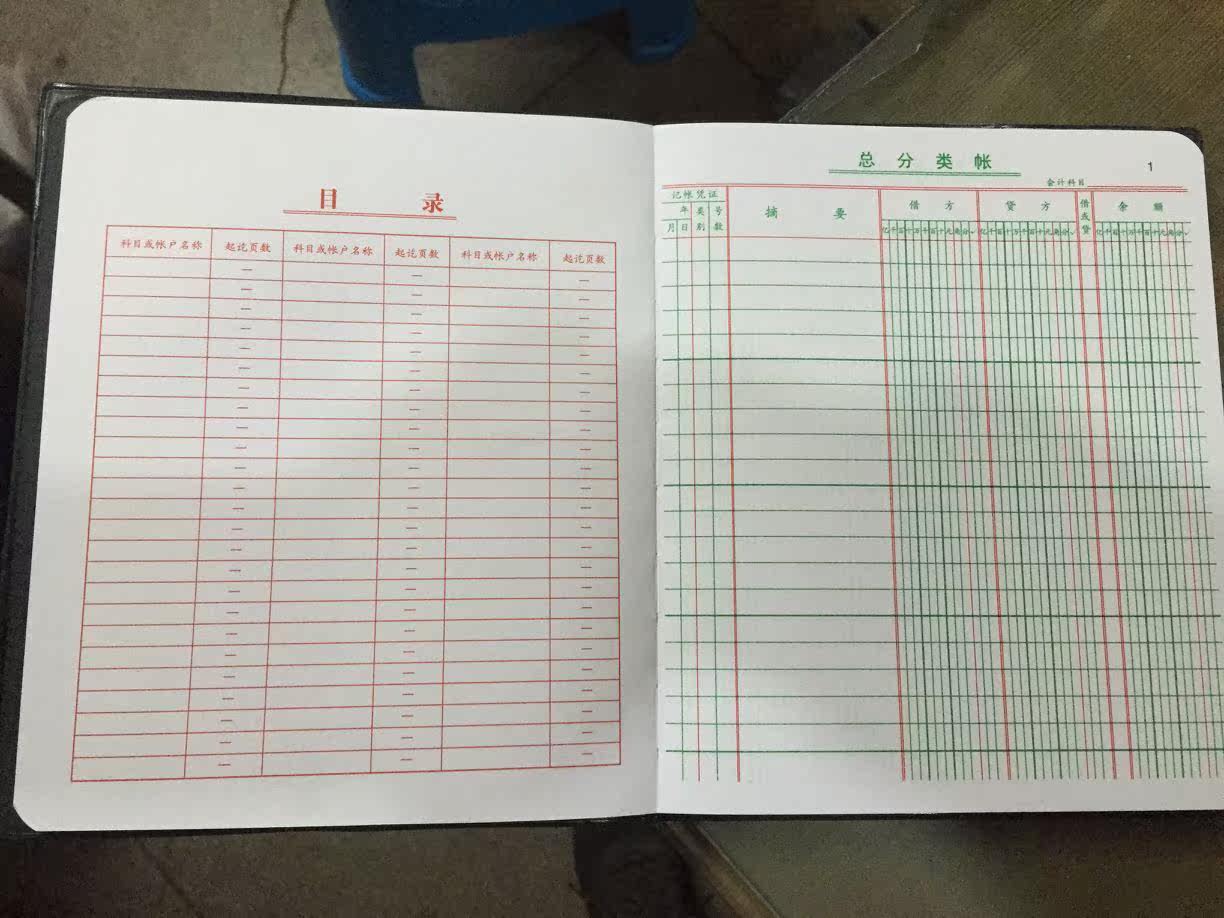 目 录
科目或帐户名称 起讫页数 科目或帐户名称 起讫页数 科目或帐户名称 起讫页数
总分类帐
1
会计科目
记帐凭证 摘 要 借 方 贷 方 借或贷 余 额
年 类 号
月 日 别 数
亿千百十万千百十元角分√ 亿千百十万千百十元角分√ 亿千百十万千百十元角分√